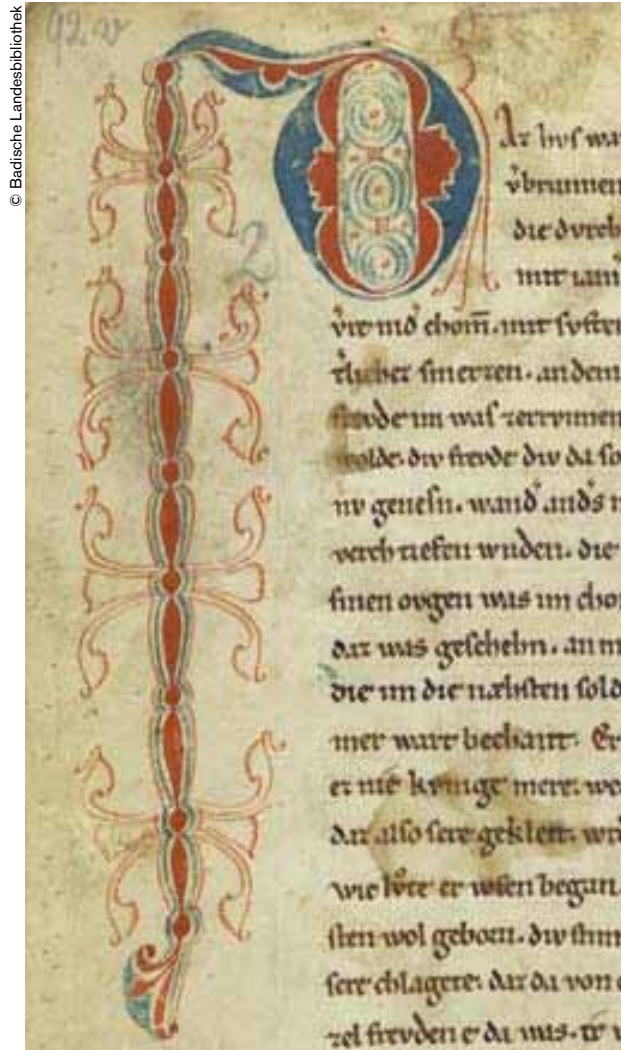 © Badische Landesbibliothek
92 v
2
DAz hvſ wa
v̓brunnen
die dvrch
mit iam
chom̄. mit
ſmerzen. an dem
im waſ zerrvnnen
wolde. div frevde div da ſo
nv geneſn. wand
verch tiefen wnden. die
ſinen ovgen was im chom
daz was geſchehn. an m
die im die næhſten ſold
mer wart bechant. Er
er nie kvnige mere. wo
daz alſo ſere geklett. wrd
wie lv̊te er wfen began.
ſten wol geborn. div ſtim
ſere chlagete. daz da von
zel frevden e da was. ir v